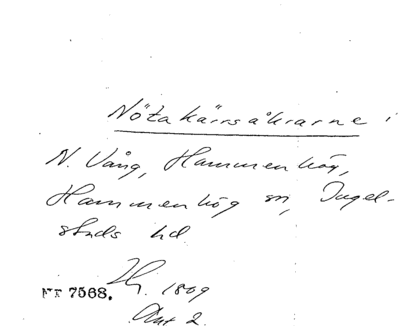 Nötakärrsåkrarne i
N. Vång, Hammenhög,
Hammenhög sn, Ingel-
stads hd.
1809
Nr 7568.
Akt 2.